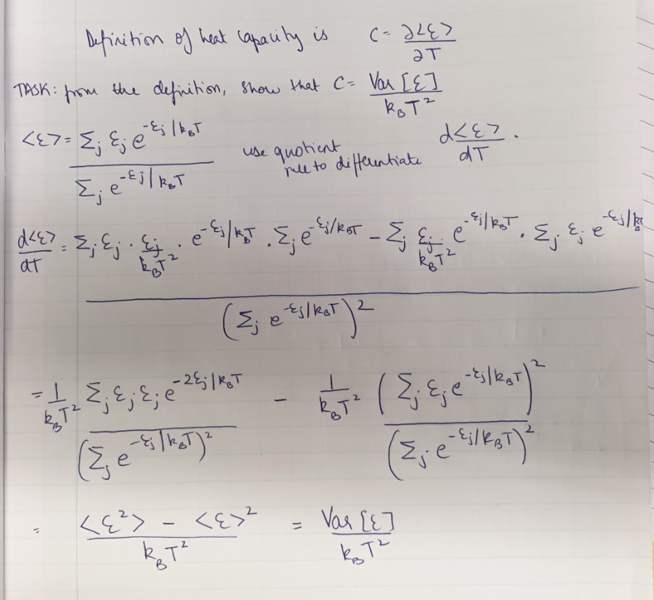 Definition of heat capacity is C = ∂<ε>/∂T
TASK: from the definition, show that C = Var[ε]/k_BT²
<ε> = Σ_j ε_j e^{-ε_j/k_BT} / Σ_j e^{-ε_j/k_BT} use quotient rule to differentiate d<ε>/dT .
d<ε>/dT = Σ_j ε_j · ε_j/k_BT² · e^{-ε_j/k_BT} · Σ_j e^{-ε_j/k_BT} - Σ_j ε_j/k_BT² e^{-ε_j/k_BT} · Σ_j ε_j e^{-ε_j/k_B
(Σ_j e^{-ε_j/k_BT})²
= 1/k_BT² Σ_j ε_j ε_j e^{-2ε_j/k_BT} / (Σ_j e^{-ε_j/k_BT})² - 1/k_BT² (Σ_j ε_j e^{-ε_j/k_BT})² / (Σ_j e^{-ε_j/k_BT})²
= <ε²> - <ε>² / k_BT² = Var[ε] / k_BT²